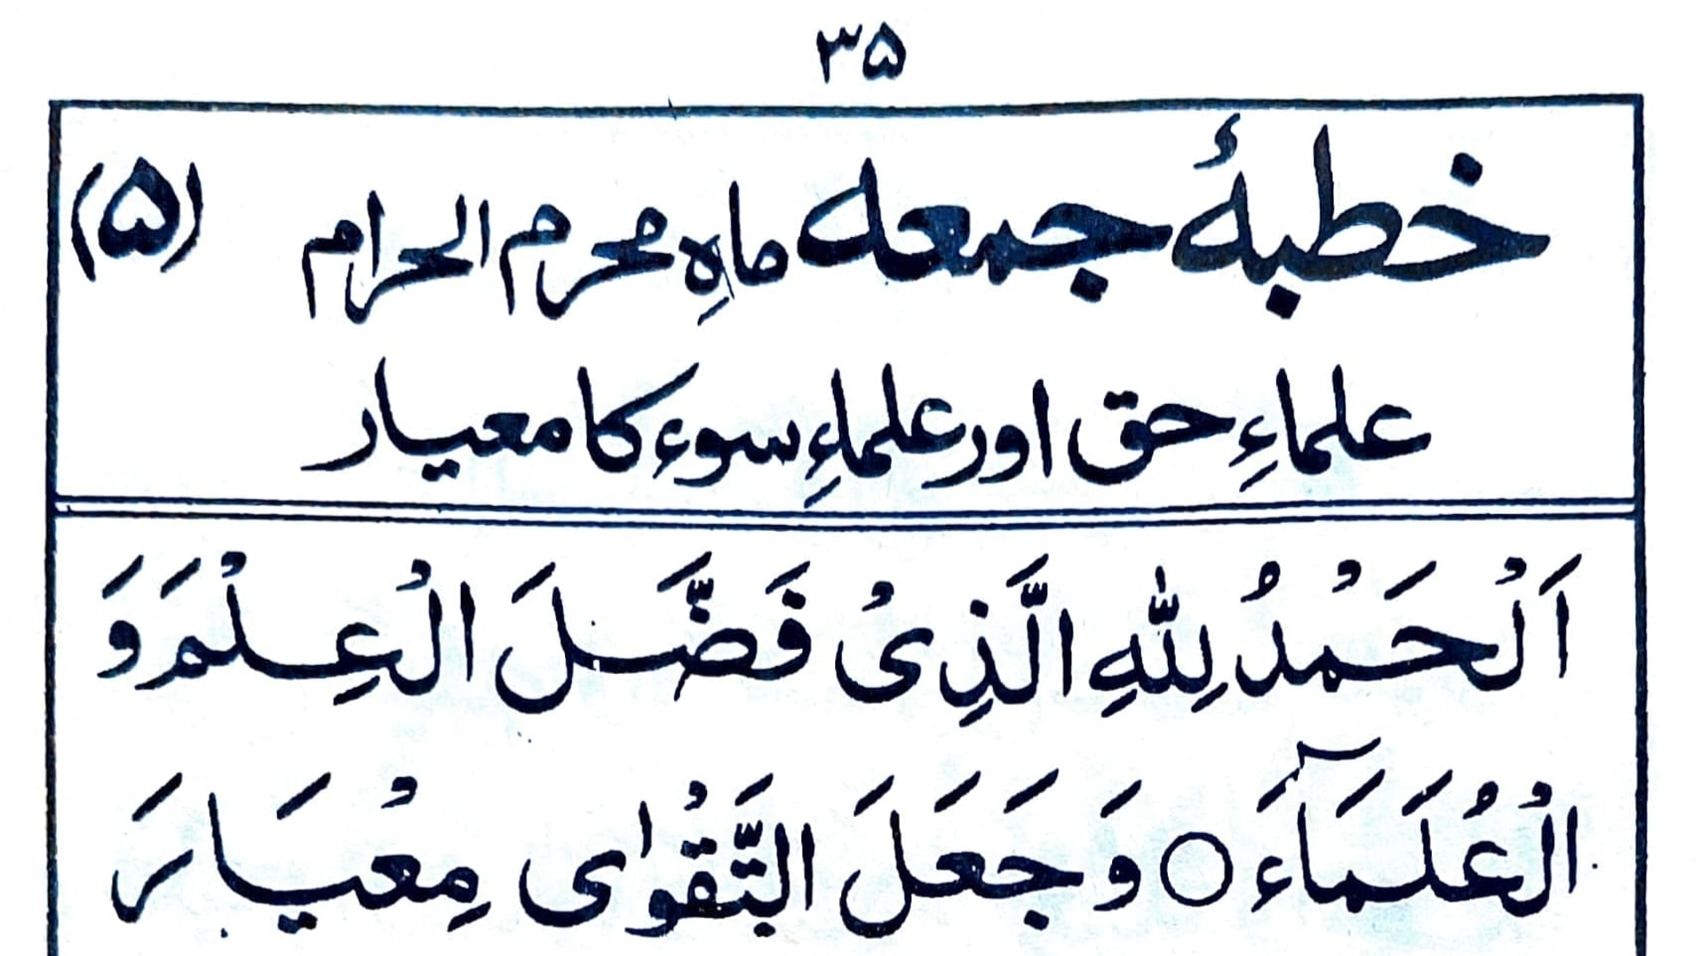 ۳۵
خطبۂ جمعہ ماہِ محرم الحرام (۵)
علماءِ حق اور علماءِ سوء کا معیار
اَلْحَمْدُ لِلّٰهِ الَّذِیْ فَضَّلَ الْعِلْمَ وَ
الْعُلَمَآءَ ○ وَ جَعَلَ التَّقْوٰی مِعْیَارَ